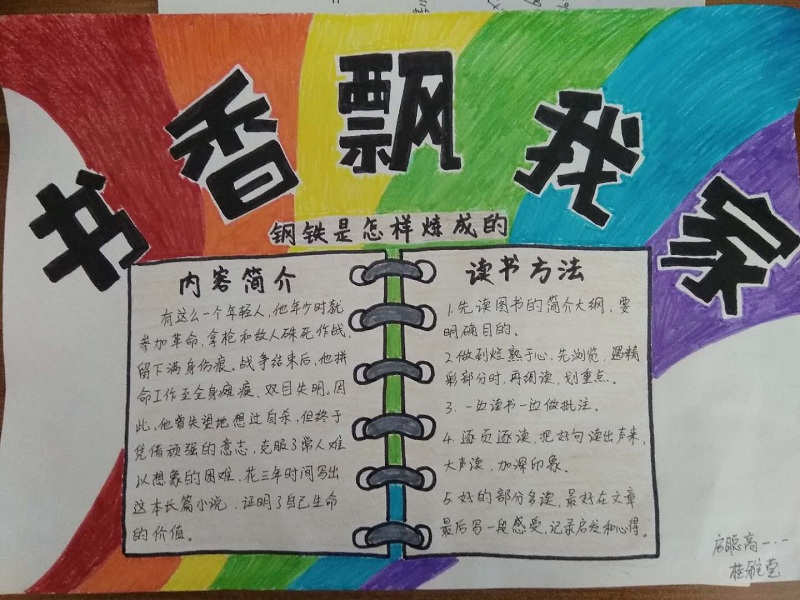 书香飘我家
钢铁是怎样炼成的
内容简介
有这么一个年轻人,他年少时就
参加革命,拿枪和敌人殊死作战,
留下满身伤痕。战争结束后,他拼
命工作至全身瘫痪,双目失明。因
此,他曾失望地想过自杀,但终于
凭借顽强的意志,克服了常人难
以想象的困难,花三年时间写出
这本长篇小说,证明了自己生命
的价值。
读书方法
1.先读图书的简介大纲,要
明确目的。
2.做到烂熟于心,先浏览,遇精
彩部分时,再细读,划重点。
3.一边读书一边做批注。
4.逐页逐读,把好句读出声来,
大声读,加深印象。
5.好的部分多读,最好在文章
最后写一段感受,记录启发和心得。
启聪高一.一
桂雅莹